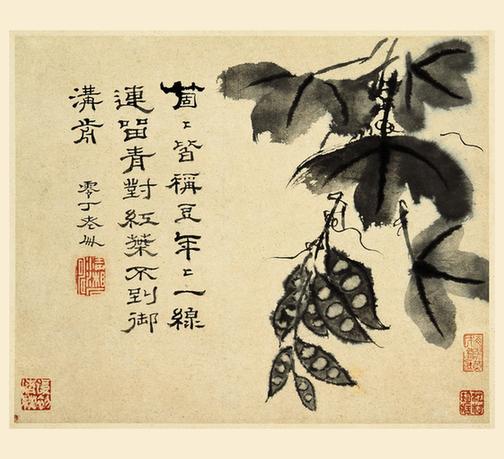 箇〻皆稱豆年〻一線
連留青對紅葉不到御
溝歬
零丁老人